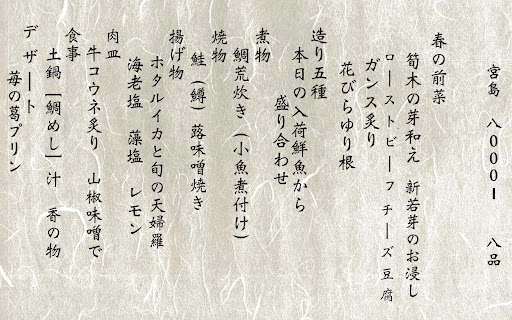 宮島 八000ー 八品
春の前菜
筍木の芽和え 新若芽のお浸し
ローストビーフ チーズ豆腐
ガンス炙り
花びらゆり根
造り五種
本日の入荷鮮魚から
盛り合わせ
煮物
鯛荒炊き(小魚煮付け)
焼物
鮭(鱒)蕗味噌焼き
揚げ物
ホタルイカと旬の天婦羅
海老塩 藻塩 レモン
肉皿
牛コウネ炙り 山椒味噌で
食事
土鍋「鯛めし」汁 香の物
デザート
苺の葛プリン